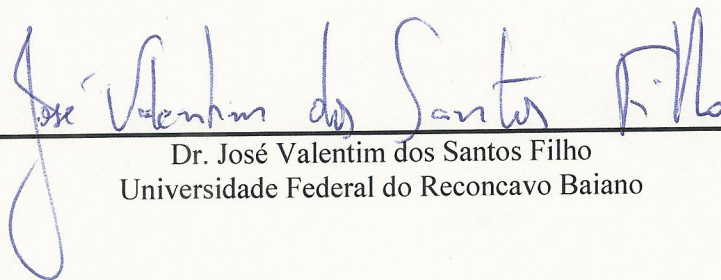 José Valentim dos Santos Filho
Dr. José Valentim dos Santos Filho
Universidade Federal do Reconcavo Baiano